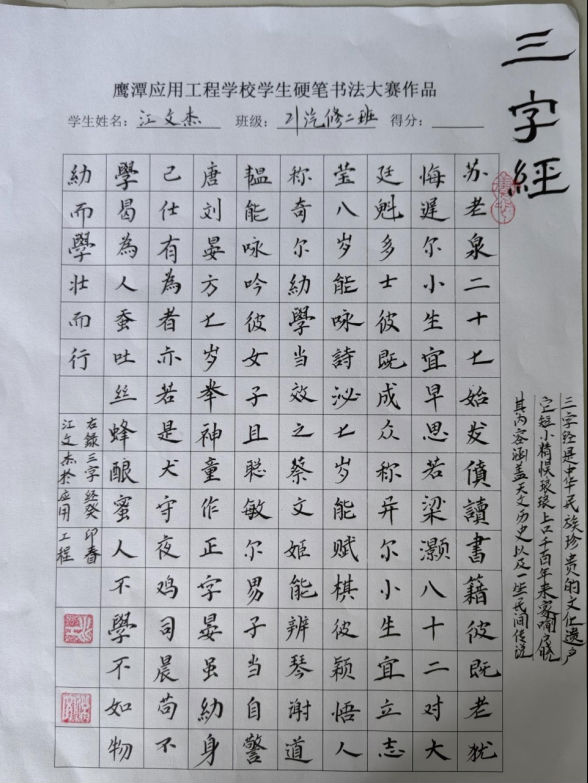 三字經
鹰潭应用工程学校学生硬笔书法大赛作品
学生姓名：江文杰 班级：21汽修二班 得分：
苏老泉二十七始发憤讀書籍彼既老犹
悔遲尔小生宜早思若梁灏八十二对大
廷魁多士彼既成众称异尔小生宜立志
莹八岁能咏詩泌七岁能赋棋彼颖悟人
称奇尔幼學当效之蔡文姬能辨琴谢道
韫能咏吟彼女子且聪敏尔男子当自警
唐刘晏方七岁举神童作正字晏虽幼身
己仕有為者亦若是犬守夜鸡司晨苟不
學曷為人蚕吐丝蜂酿蜜人不學不如物
幼而學壮而行
右錄三字经癸卯春
江文杰於应用工程
三字经是中华民族珍贵的文化遗产
它短小精悍琅琅上口千百年来家喻户晓
其内容涵盖天文历史以及一些民间传说